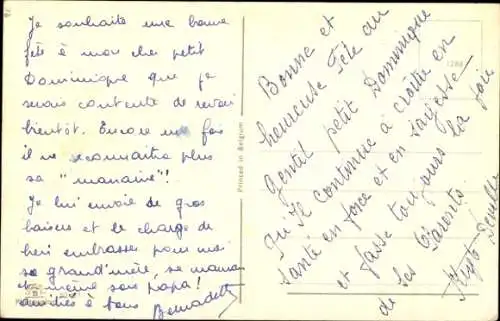 Je souhaite une bonne
fête à mon cher petit
Dominique que je
serais contente de revoir
bientôt. Encore une fois
il ne reconnaitra plus
sa "manaine"!
Je lui envoie de gros
baisers et le charge de
bien embrasser pour moi
sa grand'mère, sa maman
et même son papa!
amitiés à tous
Bernadette
Printed in Belgium
Bonne et
heureuse Fête au
Gentil petit Dominique
Qu'Il continue à croître en
santé en force et en sagesse
et fasse toujours la joie
de Ses Parents